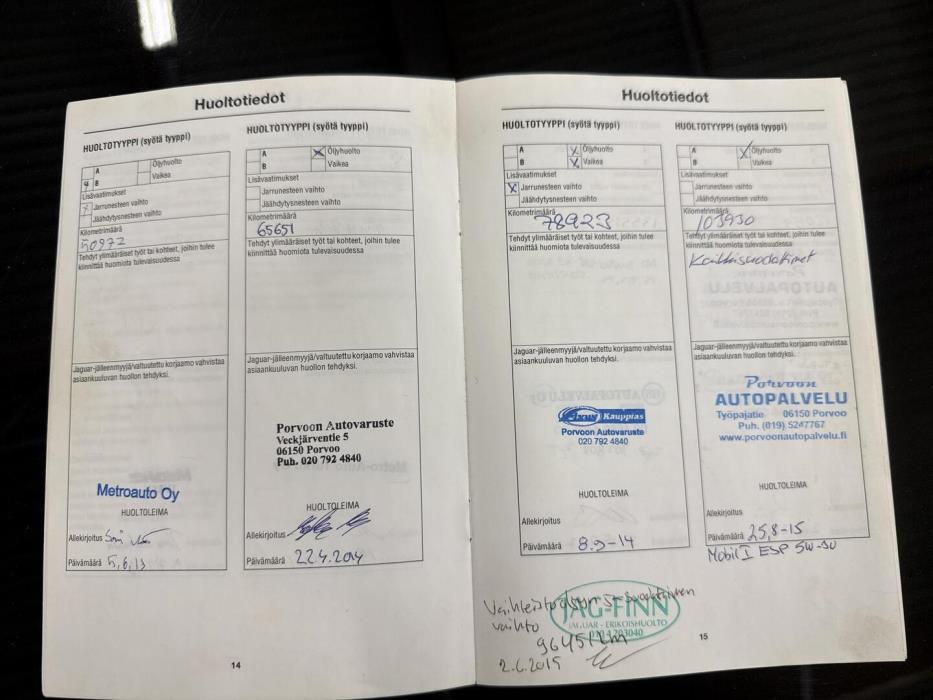 Huoltotiedot
HUOLTOTYYPPI (syötä tyyppi)
A
Öljyhuolto
B
Vaikea
Lisävaatimukset
Jarrunesteen vaihto
Jäähdytysnesteen vaihto
Kilometrimäärä
50972
Tehdyt ylimääräiset työt tai kohteet, joihin tulee
kiinnittää huomiota tulevaisuudessa
Jaguar-jälleenmyyjä/valtuutettu korjaamo vahvistaa
asiaankuuluvan huollon tehdyksi.
Metroauto Oy
HUOLTOLEIMA
Allekirjoitus
Päivämäärä 5,6,13
HUOLTOTYYPPI (syötä tyyppi)
A
X Öljyhuolto
B
Vaikea
Lisävaatimukset
Jarrunesteen vaihto
Jäähdytysnesteen vaihto
Kilometrimäärä
65651
Tehdyt ylimääräiset työt tai kohteet, joihin tulee
kiinnittää huomiota tulevaisuudessa
Jaguar-jälleenmyyjä/valtuutettu korjaamo vahvistaa
asiaankuuluvan huollon tehdyksi.
Porvoon Autovaruste
Veckjärventie 5
06150 Porvoo
Puh. 020 792 4840
HUOLTOLEIMA
Allekirjoitus
Päivämäärä 22.4.2014
14
Huoltotiedot
HUOLTOTYYPPI (syötä tyyppi)
A
X Öljyhuolto
B
X Vaikea
Lisävaatimukset
X Jarrunesteen vaihto
Jäähdytysnesteen vaihto
Kilometrimäärä
78923
Tehdyt ylimääräiset työt tai kohteet, joihin tulee
kiinnittää huomiota tulevaisuudessa
Jaguar-jälleenmyyjä/valtuutettu korjaamo vahvistaa
asiaankuuluvan huollon tehdyksi.
Fixus Kauppias
Porvoon Autovaruste
020 792 4840
HUOLTOLEIMA
Allekirjoitus
Päivämäärä 8.9-14
HUOLTOTYYPPI (syötä tyyppi)
A
X Öljyhuolto
B
Vaikea
Lisävaatimukset
Jarrunesteen vaihto
Jäähdytysnesteen vaihto
Kilometrimäärä
103930
Tehdyt ylimääräiset työt tai kohteet, joihin tulee
kiinnittää huomiota tulevaisuudessa
Kaikkisuodattimet
Jaguar-jälleenmyyjä/valtuutettu korjaamo vahvistaa
asiaankuuluvan huollon tehdyksi.
Porvoon
AUTOPALVELU
Työpajatie 06150 Porvoo
Puh. (019) 5247767
www.porvoonautopalvelu.fi
HUOLTOLEIMA
Allekirjoitus
Päivämäärä 25,8-15
Mobil 1 ESP 5W-30
Vaihteistoöljyn ja suodattimen
vaihto
96451km
2.6.2015
JAG-FINN
JAGUAR - ERIKOISHUOLTO
15